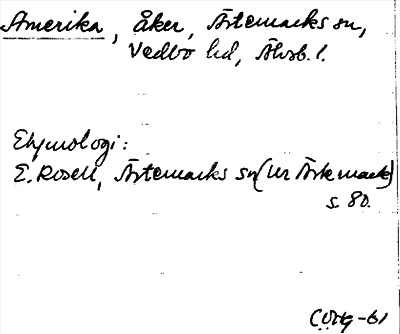 Amerika, åker, Ärtemarks sn,
Vedbo hd, Älvsb. l.
Etymologi:
E. Rosell, Ärtemarks sn (ur Ärtemark)
s. 80.
-61